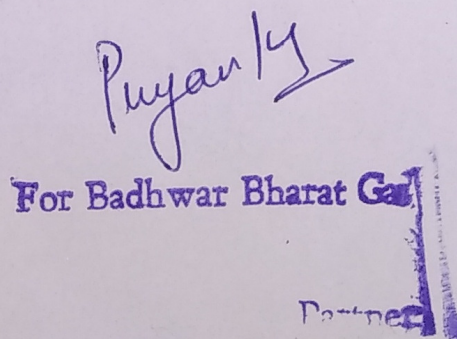 Priyanky
For Badhwar Bharat Gas
Partner